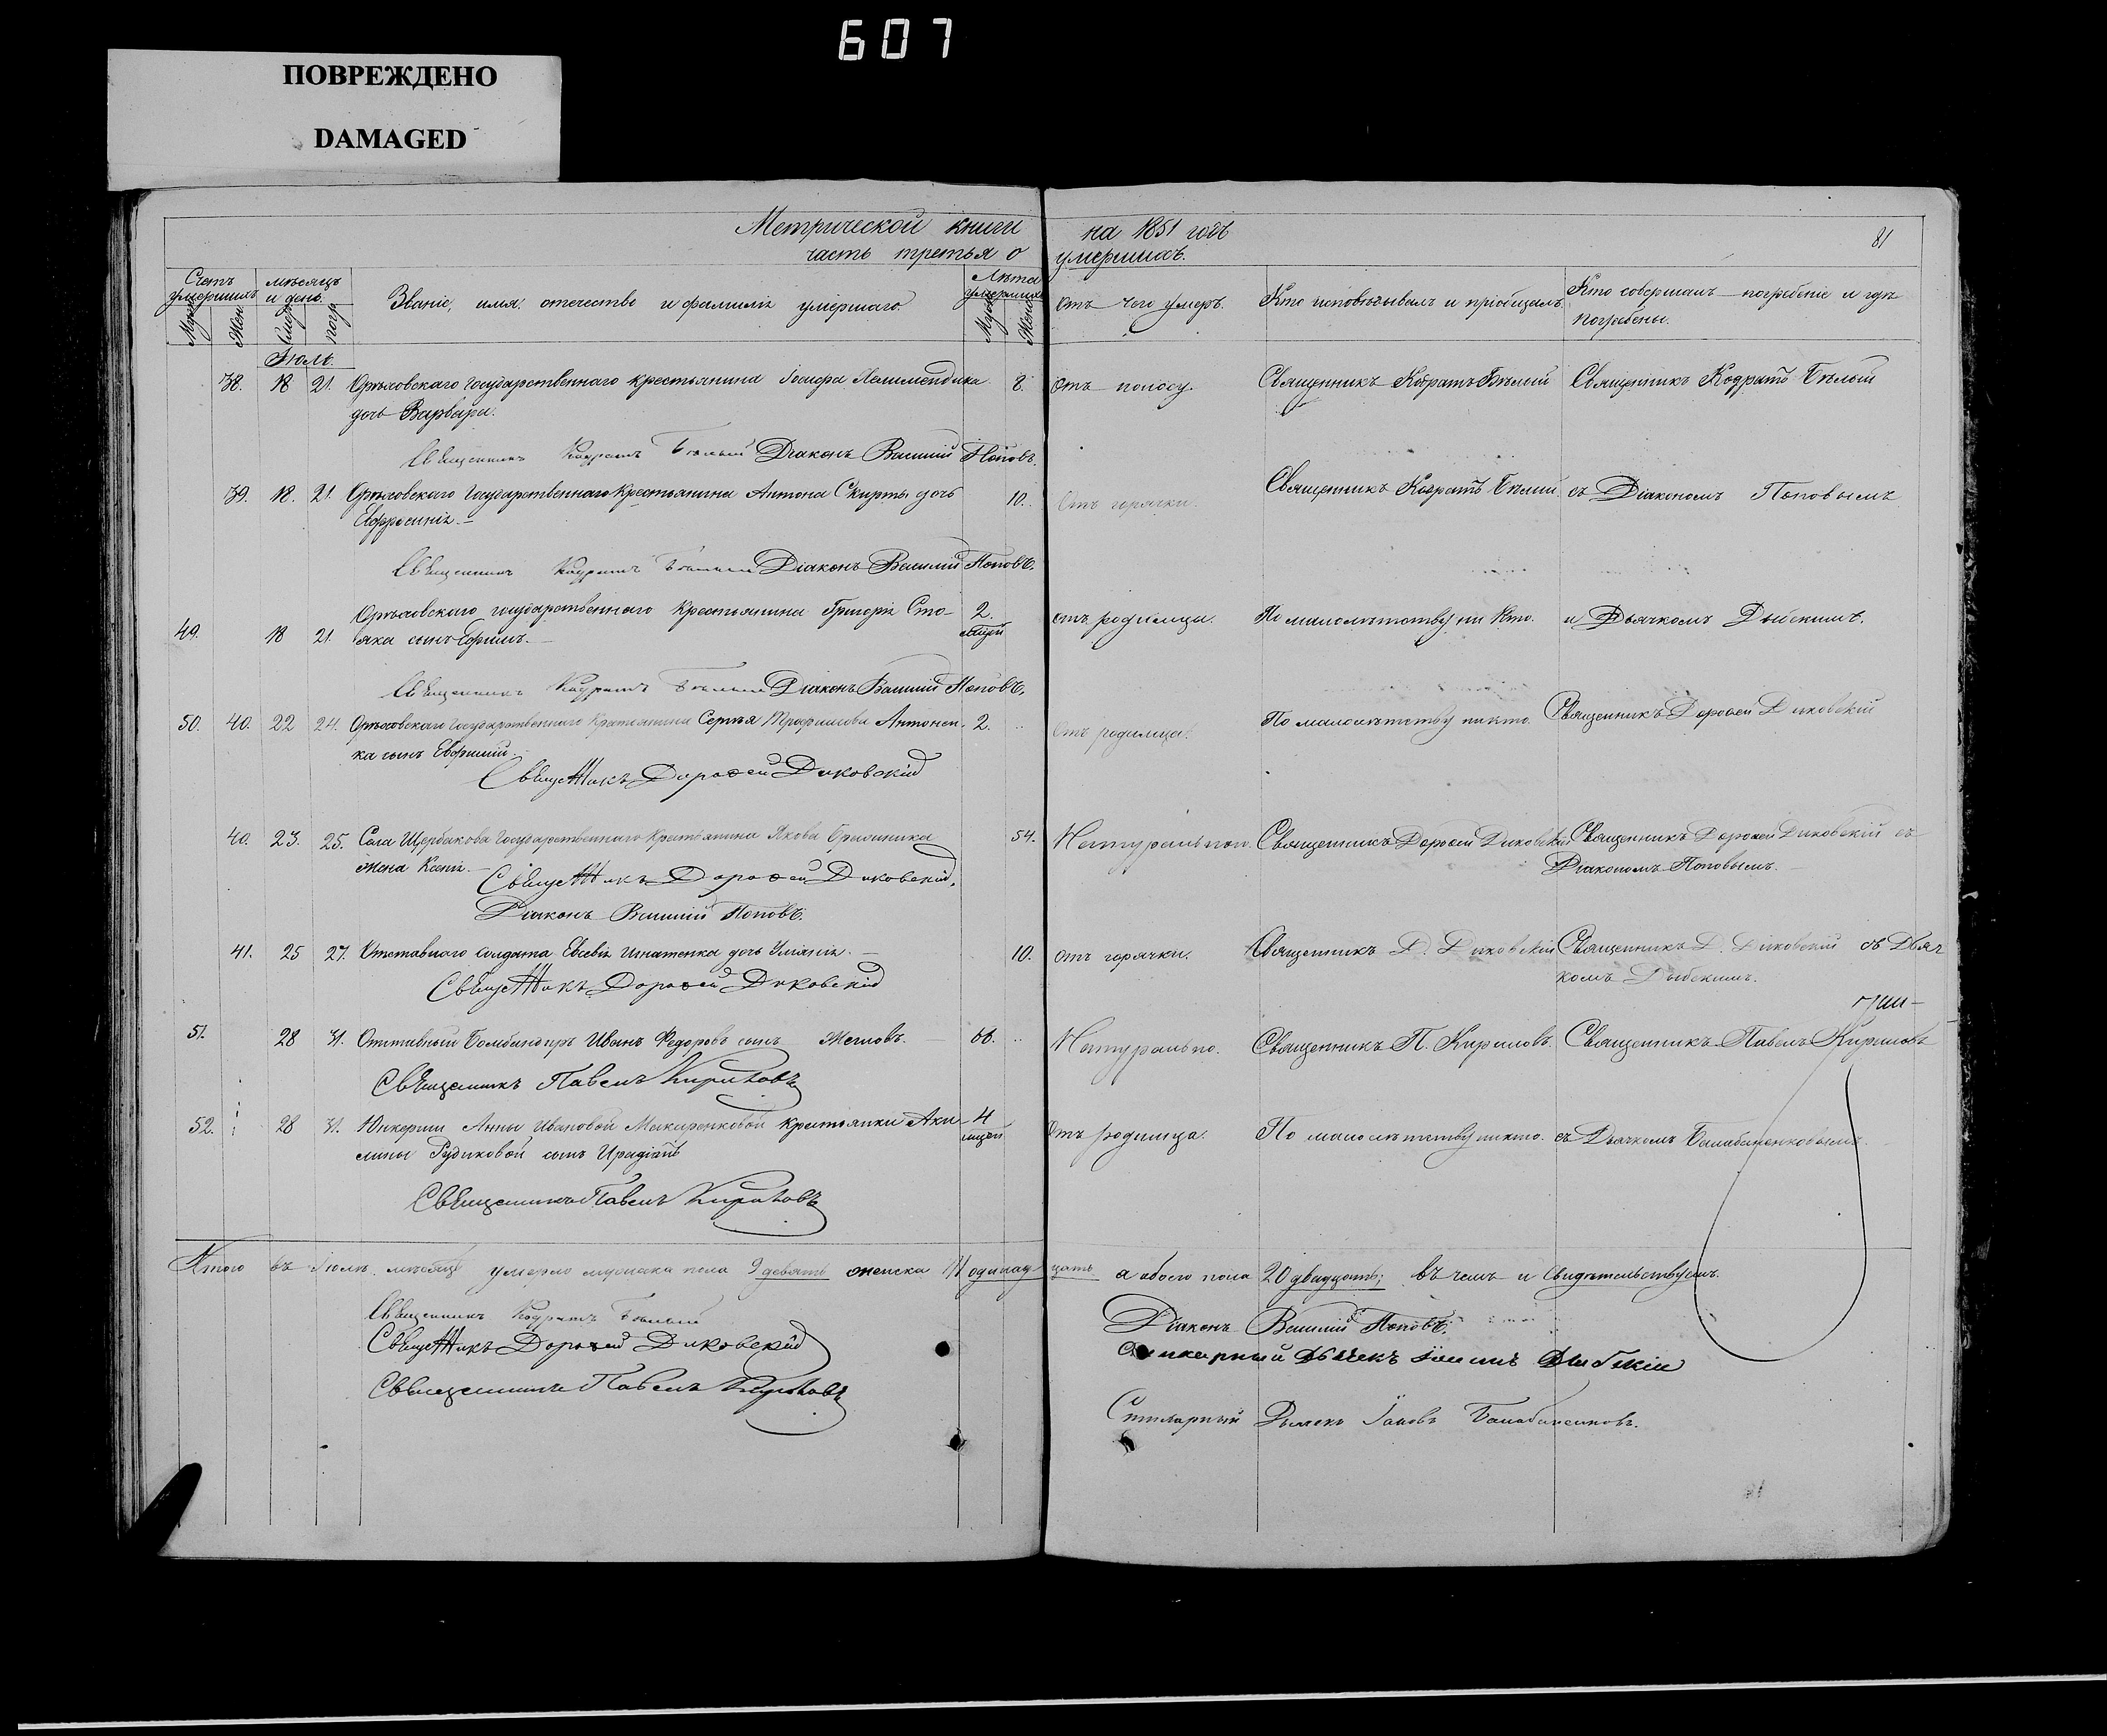 607
ПОВРЕЖДЕНО
DAMAGED
Метрической книги на 1851 годъ
часть третья о умершихъ.
81
Счетъ умершихъ
Муж.
Жен.
мѣсяцъ и день.
погр.
Званіе, имя, отечество и фамилія умершаго.
Лѣта умершихъ
Муж.
Жен.
Отъ чего умеръ.
Кто исповѣдывалъ и пріобщалъ.
Кто совершалъ погребеніе и гдѣ
погребены.
Іюль.
38. 18 21. Орѣховскаго государственнаго крестьянина Іосифа 8. Отъ поносу. Священникъ Кодратъ Бѣлый Священникъ Кодратъ Бѣлый
дочь Варвара.
Священникъ Кодратъ Бѣлый Діаконъ Василій Поповъ.
39. 18. 21. Орѣховскаго Государственнаго Крестьянина Антона Скирты дочь 10. Отъ горячки. Священникъ Кодратъ Бѣлый съ Діакономъ Поповымъ
Евфросинія.
Священникъ Кодратъ Бѣлый Діаконъ Василій Поповъ.
49. 18 21. Орѣховскаго государственнаго крестьянина Григорія Сто- 2. отъ родимца. По малолѣтству ни кто. и Дьячкомъ
яка сынъ Ефимъ.
Священникъ Кодратъ Бѣлый Діаконъ Василій Поповъ.
50. 40. 22 24. Орѣховскаго Государственнаго Крестьянина Сергѣя Трофимова Антонен- 2. Отъ родимца. По малолѣтству никто. Священникъ Дорофей Диковскій
ка сынъ Евфимій.
Священникъ Дорофей Диковскій
40. 23. 25. Села Щербакова Государственнаго Крестьянина Якова 54. Натурально. Священникъ Дорофей Диковскій Священникъ Дорофей Диковскій съ
жена Ксенія. Діакономъ Поповымъ.
Священникъ Дорофей Диковскій.
Діаконъ Василій Поповъ.
41. 25 27. Отставного солдата Евсевія Игнатенка дочь Уліянія. 10. отъ горячки. Священникъ Д. Диковскій Священникъ Д. Диковскій съ Дьяч
комъ
Священникъ Дорофей Диковскій
51. 28 31. Отставный Бомбандиръ Иванъ Федоровъ сынъ 66. Натурально. Священникъ П. Кириловъ. Священникъ Павелъ Кириловъ
Священникъ Павелъ Кириловъ
52. 28 31. Юнкерши Анны Ивановой Макаренковой крестьянки Аки- 4 Отъ родимца. По малолѣтству никто. съ Дьячкомъ Балабаненковымъ.
лины Рудиковой сынъ
Священникъ Павелъ Кириловъ
Итого въ Іюлѣ мѣсяцѣ умерло мужска пола 9 девять женска 11 одинадцать а обоего пола 20 двадцать; въ чемъ и свидѣтельствуемъ.
Священникъ Кодратъ Бѣлый
Священникъ Дорофей Диковскій
Священникъ Павелъ Кириловъ
Діаконъ Василій Поповъ.
Стихарный Дьячекъ
Стихарный Дьячекъ Іаковъ Балабаненковъ.